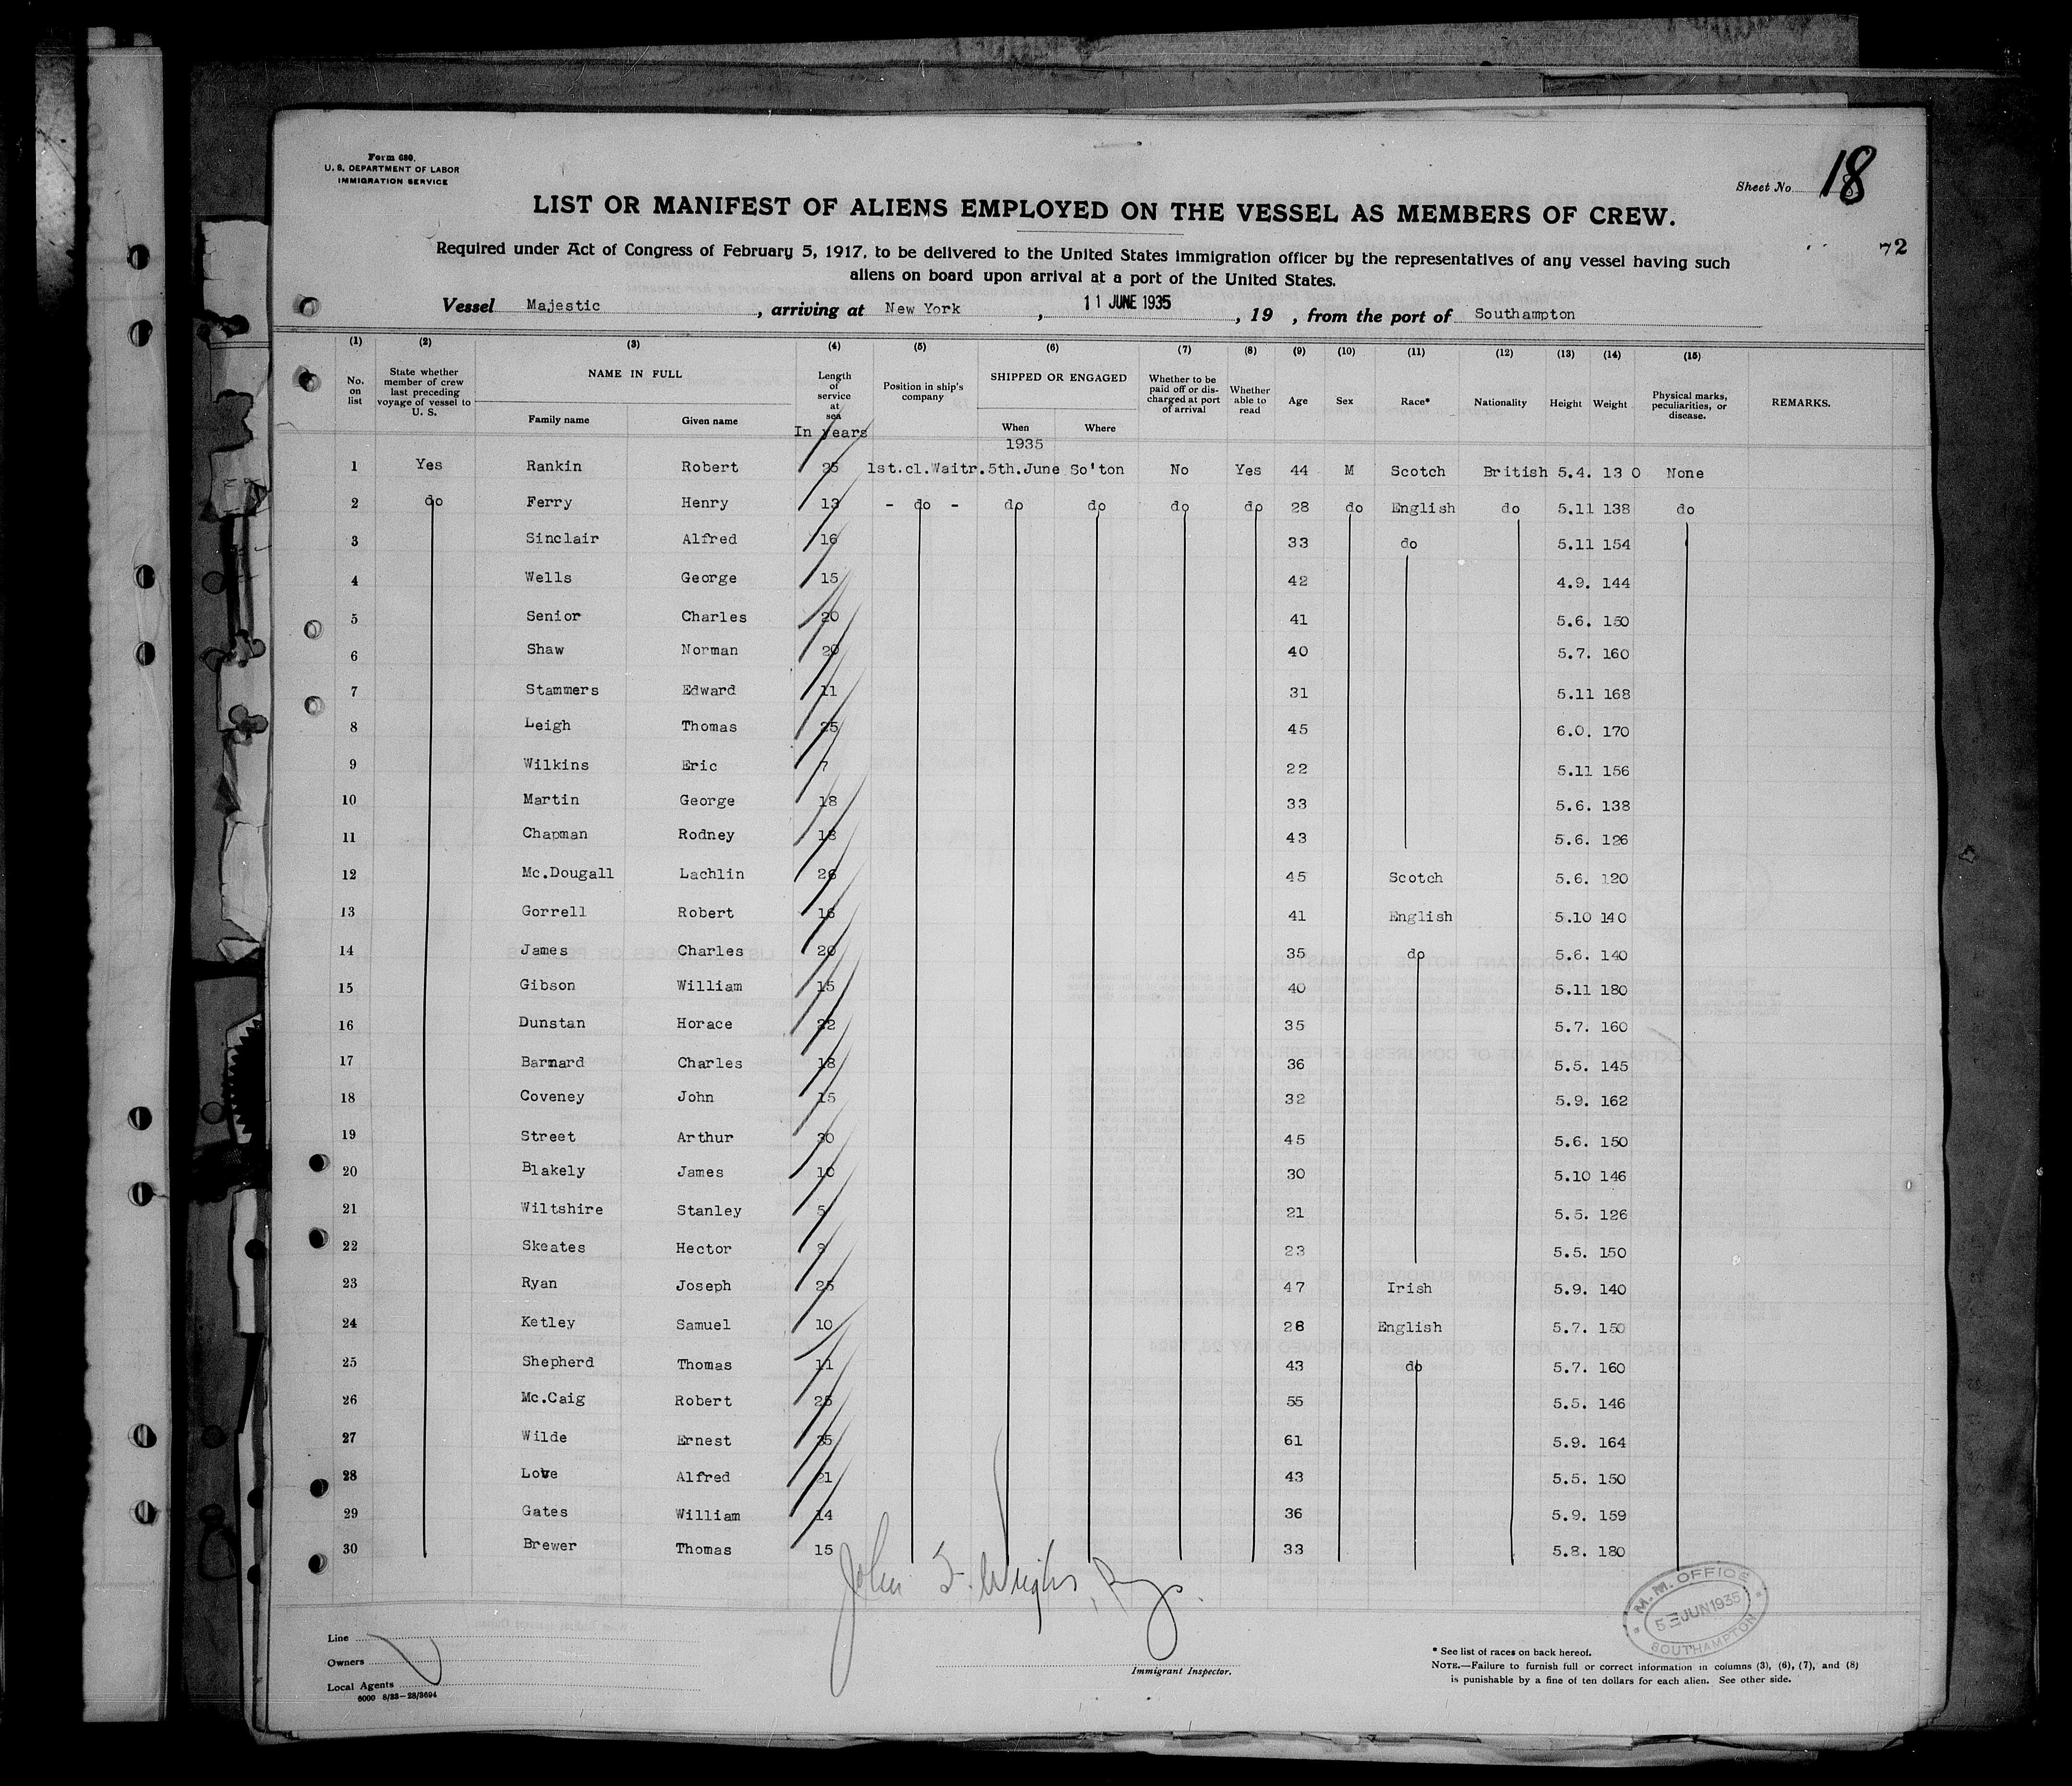 Form 680.
U. S. DEPARTMENT OF LABOR
IMMIGRATION SERVICE
Sheet No. 18
LIST OR MANIFEST OF ALIENS EMPLOYED ON THE VESSEL AS MEMBERS OF CREW.
72
Required under Act of Congress of February 5, 1917, to be delivered to the United States immigration officer by the representatives of any vessel having such
aliens on board upon arrival at a port of the United States.
Vessel Majestic, arriving at New York, 11 JUNE 1935, 19 , from the port of Southampton
(1) (2) (3) (4) (5) (6) (7) (8) (9) (10) (11) (12) (13) (14) (15)
No. on list
State whether member of crew last preceding voyage of vessel to U. S.
NAME IN FULL
Family name Given name
Length of service at sea
In years
Position in ship's company
SHIPPED OR ENGAGED
When Where
1935
Whether to be paid off or discharged at port of arrival
Whether able to read
Age Sex Race* Nationality Height Weight
Physical marks, peculiarities, or disease.
REMARKS.
1 Yes Rankin Robert 25 1st.cl.Waitr. 5th.June So'ton No Yes 44 M Scotch British 5.4. 130 None
2 do Ferry Henry 13 - do - do do do do 28 do English do 5.11 138 do
3 Sinclair Alfred 16 33 do 5.11 154
4 Wells George 15 42 4.9. 144
5 Senior Charles 20 41 5.6. 150
6 Shaw Norman 20 40 5.7. 160
7 Stammers Edward 11 31 5.11 168
8 Leigh Thomas 25 45 6.0. 170
9 Wilkins Eric 7 22 5.11 156
10 Martin George 18 33 5.6. 138
11 Chapman Rodney 18 43 5.6. 126
12 Mc.Dougall Lachlin 26 45 Scotch 5.6. 120
13 Gorrell Robert 16 41 English 5.10 140
14 James Charles 20 35 do 5.6. 140
15 Gibson William 15 40 5.11 180
16 Dunstan Horace 22 35 5.7. 160
17 Barnard Charles 18 36 5.5. 145
18 Coveney John 15 32 5.9. 162
19 Street Arthur 30 45 5.6. 150
20 Blakely James 10 30 5.10 146
21 Wiltshire Stanley 5 21 5.5. 126
22 Skeates Hector 23 5.5. 150
23 Ryan Joseph 25 47 Irish 5.9. 140
24 Ketley Samuel 10 26 English 5.7. 150
25 Shepherd Thomas 11 43 do 5.7. 160
26 Mc.Caig Robert 25 55 5.5. 146
27 Wilde Ernest 35 61 5.9. 164
28 Love Alfred 21 43 5.5. 150
29 Gates William 14 36 5.9. 159
30 Brewer Thomas 15 33 5.8. 180
John
M. M. OFFICE
5 JUN 1935
SOUTHAMPTON
Line
Owners
Local Agents
6000 8/33—28/3694
Immigrant Inspector.
* See list of races on back hereof.
NOTE.—Failure to furnish full or correct information in columns (3), (6), (7), and (8)
is punishable by a fine of ten dollars for each alien. See other side.